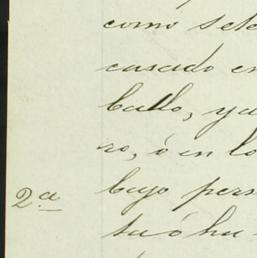 como sete
casado en
ballo, ya
ro, ó en lo
bajo pers
2ª
tu ó hu